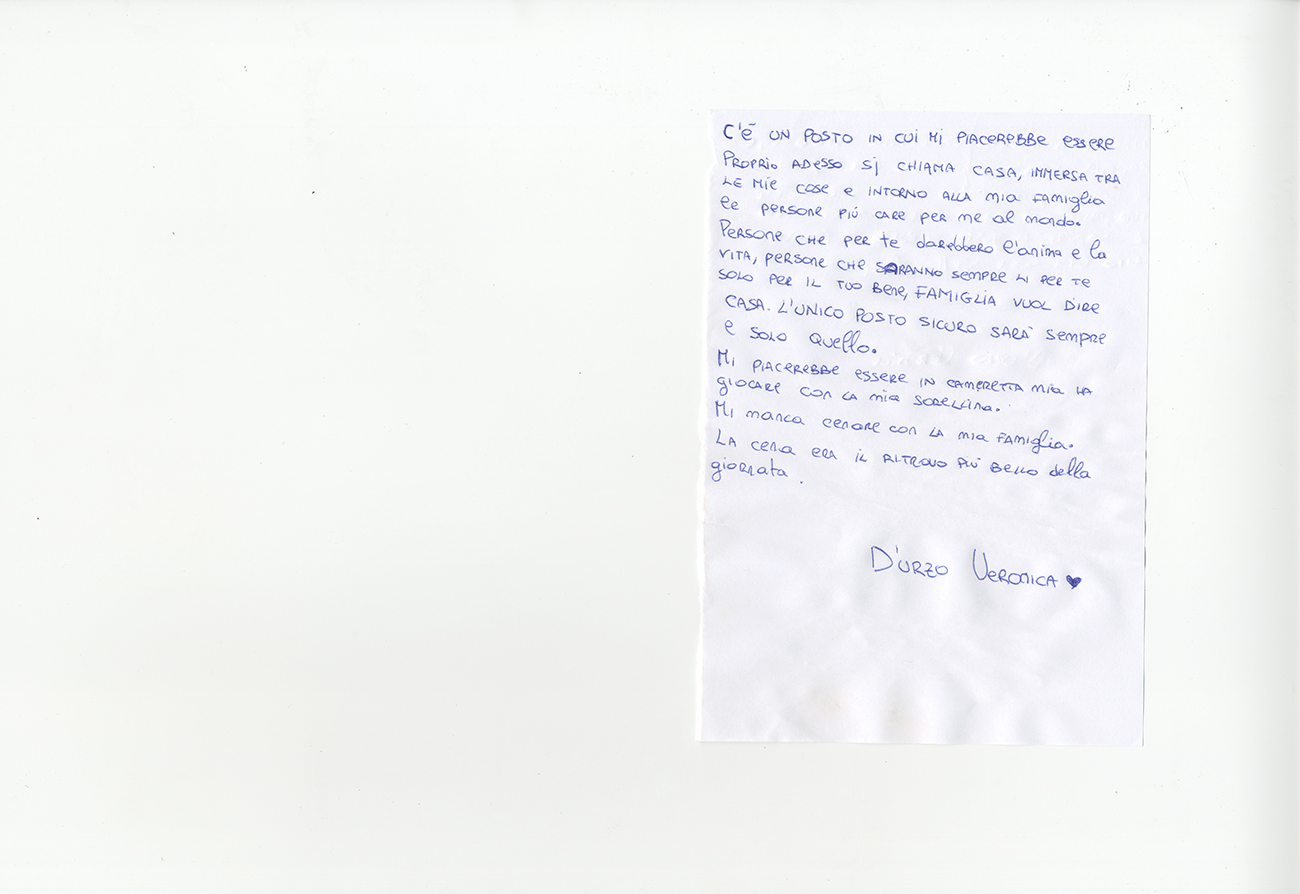 C'È UN POSTO IN CUI MI PIACEREBBE ESSERE
PROPRIO ADESSO SI CHIAMA CASA, IMMERSA TRA
LE MIE COSE E INTORNO ALLA MIA FAMIGLIA
le PERSONE PIÚ CARE PER ME al MONDO.
PERSONE CHE PER te darebbero l'anima e la
VITA, PERSONE CHE SARANNO SEMPRE LI PER TE
SOLO PER IL TUO BENE, FAMIGLIA VUOL DIRE
CASA. L'UNICO POSTO SICURO SARÀ SEMPRE
E SOLO QUELLO.
MI PIACEREBBE ESSERE IN CAMERETTA MIA HA
GIOCARE CON LA MIA SORELLINA.
MI MANCA CENARE CON LA MIA FAMIGLIA.
LA CENA ERA IL RITROVO PIÙ BELLO della
giornata.
D'URZO VERONICA ♥